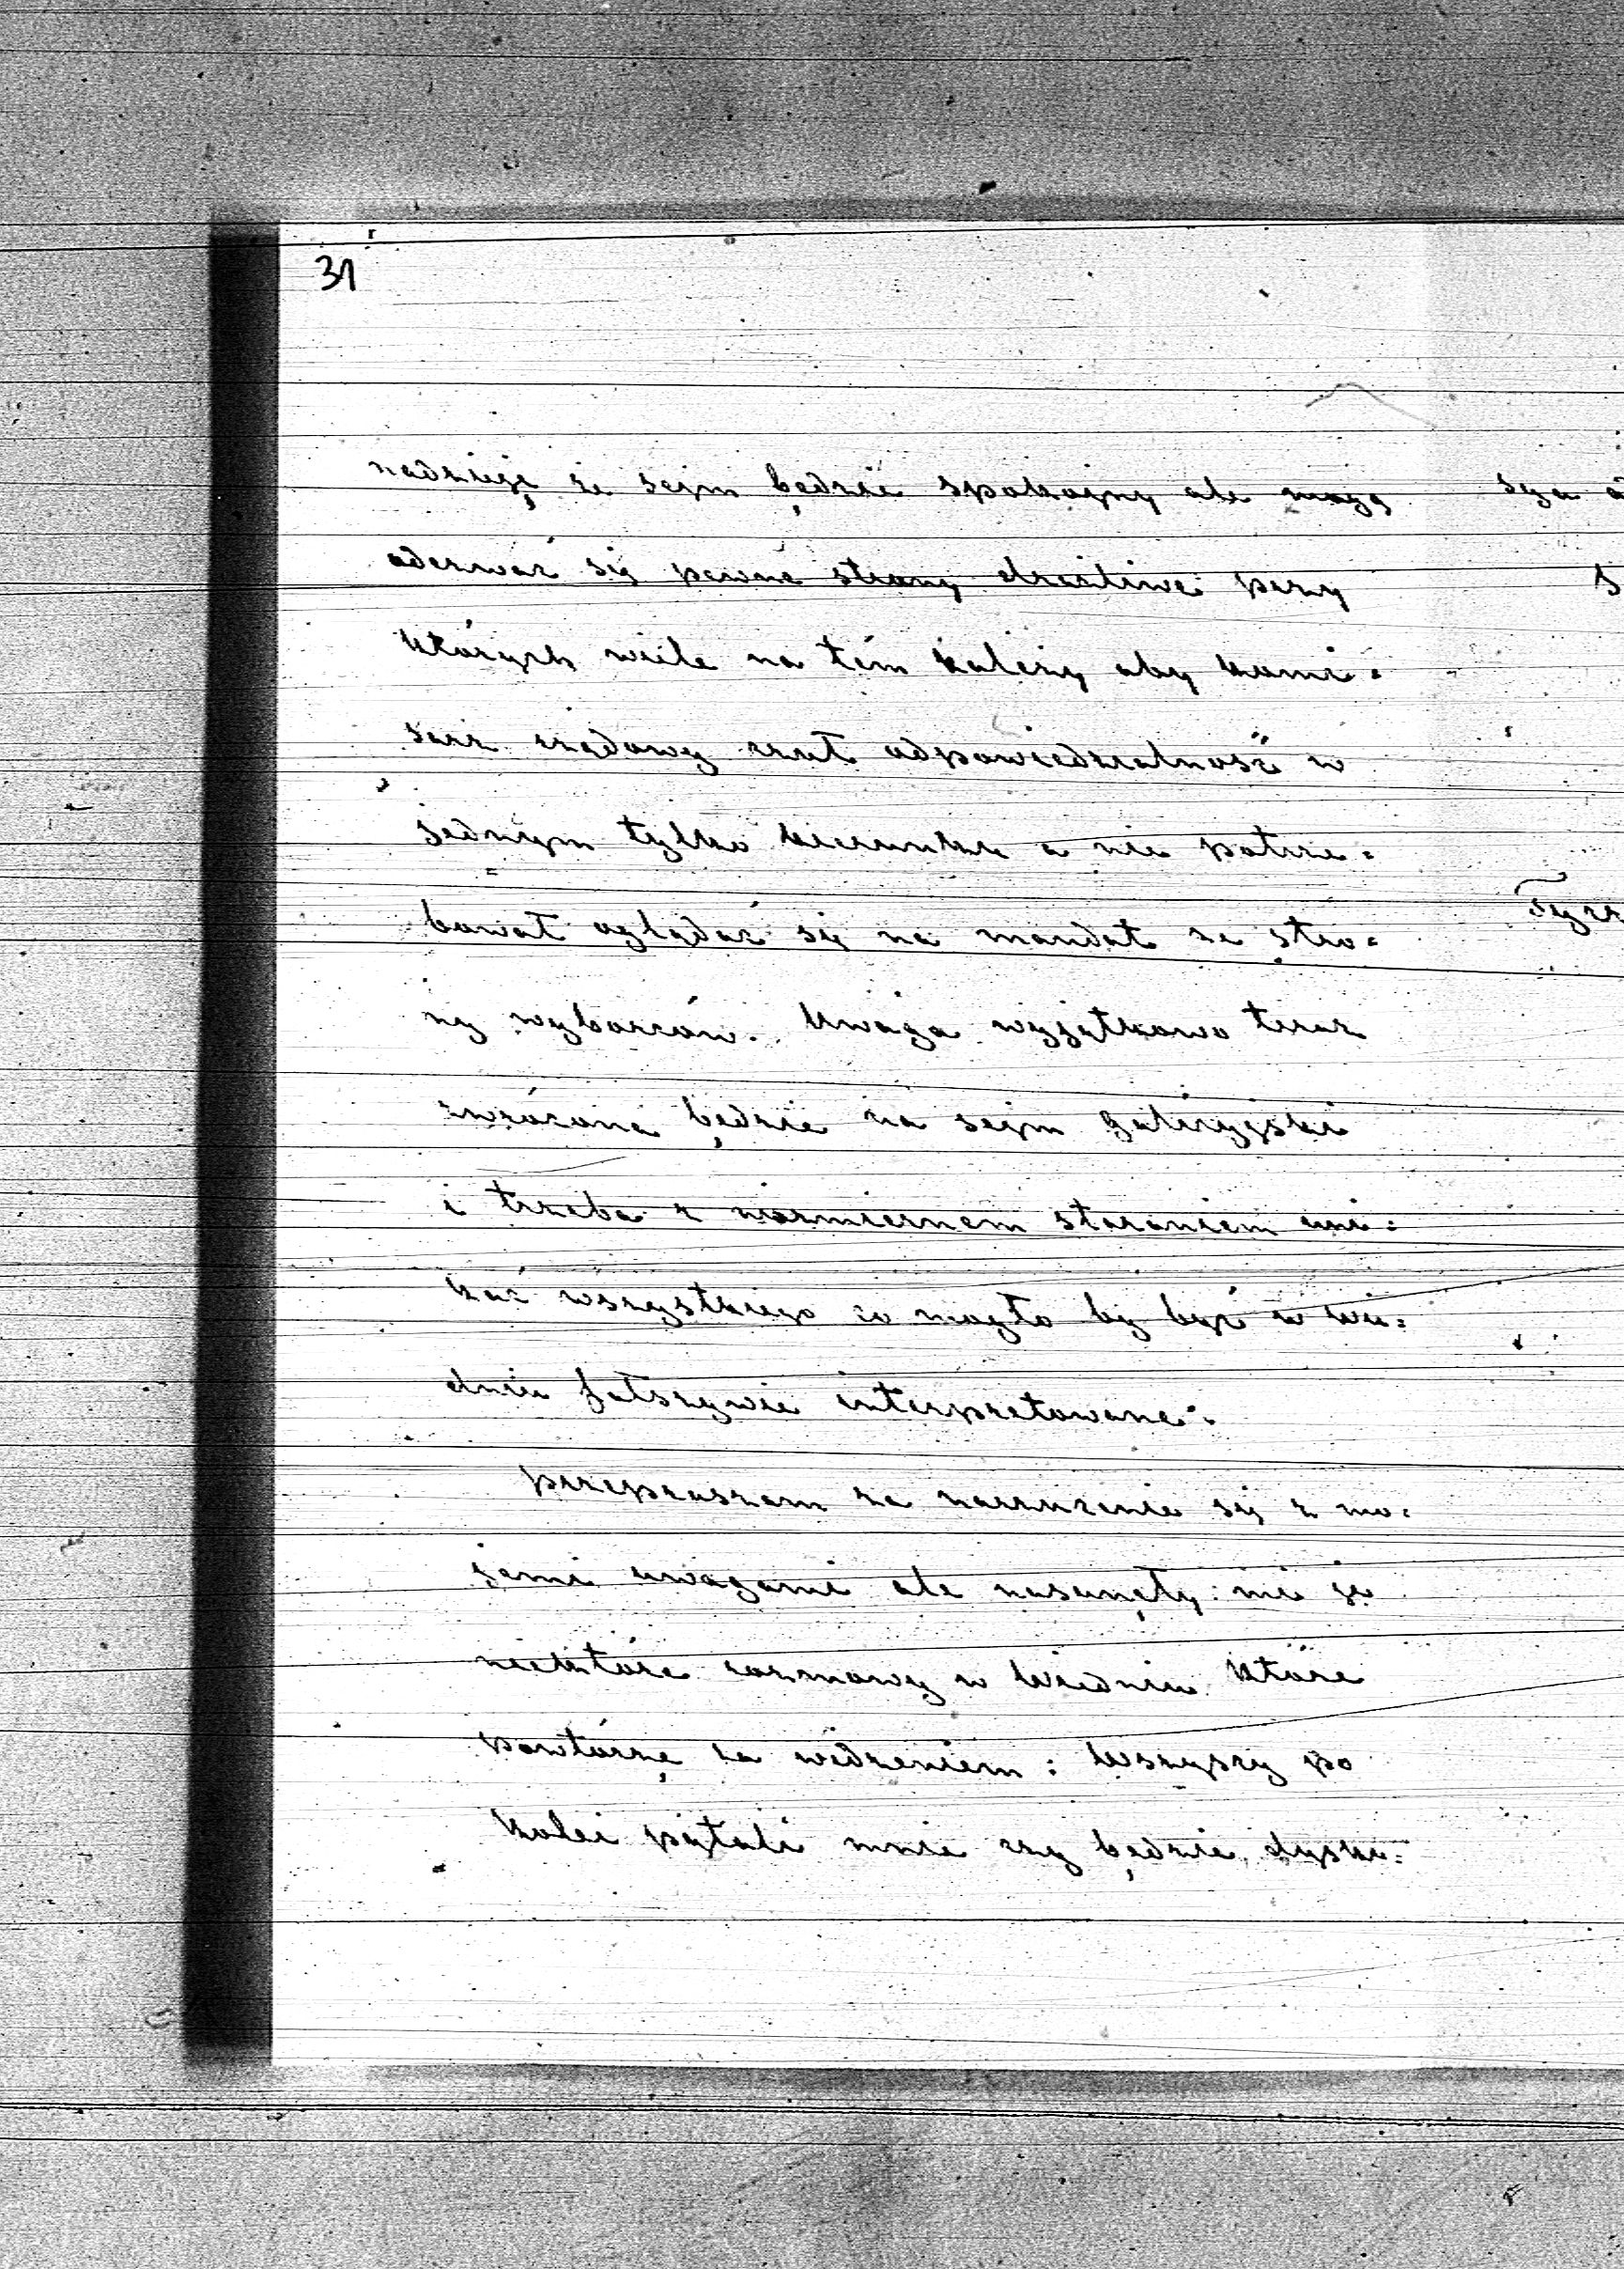 31
nadzieję że sejm będzie spokojny ale mogą
oderwać się pewne strony drażliwe przy
których wiele na tém zależy aby komi=
sarz rządowy czuł odpowiedzialność w
jednym tylko kierunku a nie potrze=
bował oglądać się na mandat ze stro=
ny wyborców. Uwaga wyjątkowo teraz
zwrócona będzie na sejm galicyjski
i trzeba z niezmiernem staraniem uni=
kać wszystkiego co mogło by być w Wie=
dniu fałszywie interpretowane.
Przepraszam za narzucenie się z mo=
jemi uwagami ale nasunęły mi je
niektóre rozmowy w Wiedniu które
powtórzę za widzeniem: Wszyscy po
kolei pytali mnie czy będzie dysku=